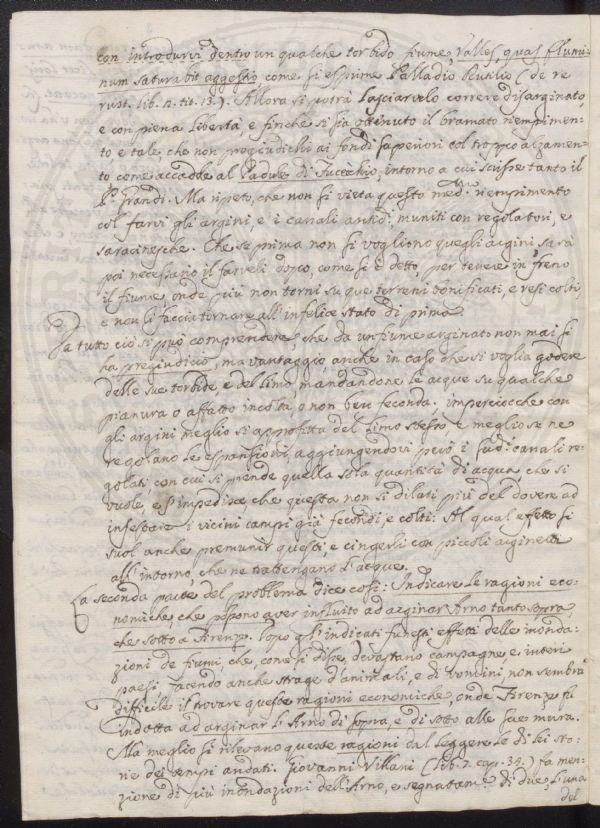 con introdurvi dentro un qualche torbido fiume, Valles, quas flumi-
num saturabit aggestio come si esprime Palladio Rutilio (de re
rust. lib. 2. tit. 13.). Allora si potrà lasciarvelo correre disarginato,
e con piena libertà, e finchè si sia ottenuto il bramato riempimen-
to e tale, che non pregiudichi ai fondi superiori col troppo alzamen-
to come accadde al Padule di Fucecchio, intorno a cui scrisse tanto il
P. Grandi. Ma ripeto, che non si vieta questo med.mo riempimento
col farvi gli argini, e i canali muniti con regolatori, e
saracinesche. Che se prima non si vogliono quegli argini sarà
poi necessario il farveli dopo, come si è detto, per tenere in freno
il fiume, onde più non torni su que' terreni bonificati, e resi colti,
e non li faccia tornare all'infelice stato di prima.
Da tutto ciò si può comprendere, che da un fiume arginato non mai si
ha pregiudicio, ma vantaggio anche in caso che si voglia godere
delle sue torbide, e del limo, mandandone le acque su qualche
pianura o affatto incolta, o non ben feconda. imperciocchè con
gli argini meglio si approfitta del limo stesso, e meglio se ne
regolano le espansioni, aggiungendovi però i sud.i canali re-
golati, con cui si prende quella sola quantità di acqua, che si
vuole, e s'impedisce, che questa non si dilati più del dovere ad
infestare i vicini campi già fecondi, e colti: Al qual effetto si
suol anche premunir questi, e cingerli con piccoli arginetti
all'intorno, che ne trattengano l'acque.
La seconda parte del problema dice così: Indicare le ragioni eco-
nomiche, che possono aver influito ad arginar Arno tanto sopra
che sotto a Firenze. Dopo gl'indicati funesti effetti delle inonda-
zioni de fiumi, che, come si disse, devastano campagne, e interi
paesi facendo anche strage d'animali, e di uomini, non sembra
difficile il trovare queste ragioni economiche, onde Firenze fu
indotta ad arginar l'Arno di sopra, e di sotto alle sue mura.
Ma meglio si rilevano queste ragioni dal leggere le di lei sto-
rie dei tempi andati. Giovanni Villani (lib. 7. cap. 34.) fa men-
zione di più inondazioni dell'Arno, e segnatam.e di due, l'una
del